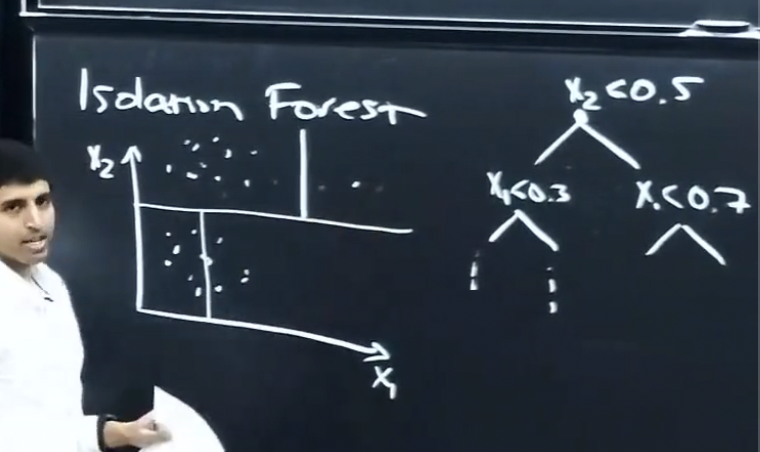 Isolation Forest
x₂ < 0.5
x₂
x₁ < 0.3
x₁ < 0.7
x₁